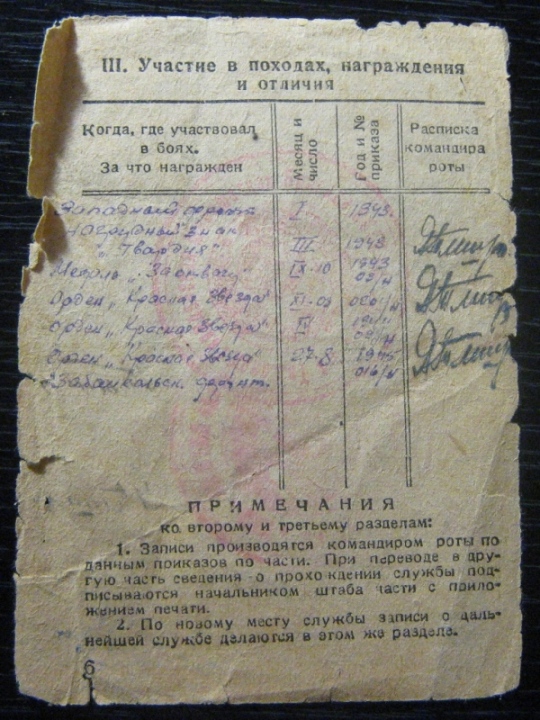 III. Участие в походах, награждения
и отличия
Когда, где участвовал
в боях.
За что награжден
Месяц и
число
Год и №
приказа
Расписка
командира
роты
Западный фронт I 1943.
Нагрудный знак
"Гвардия" III 1943
Медаль "За отвагу" IX-10 1943
Орден "Красная Звезда" XI-03
Орден "Красная Звезда"
Орден "Красная Звезда" 27-8. 1945
Забайкальск. фронт.
ПРИМЕЧАНИЯ
ко второму и третьему разделам:
1. Записи производятся командиром роты по
данным приказов по части. При переводе в дру-
гую часть сведения о прохождении службы под-
писываются начальником штаба части с прило-
жением печати.
2. По новому месту службы записи о даль-
нейшей службе делаются в этом же разделе.
6